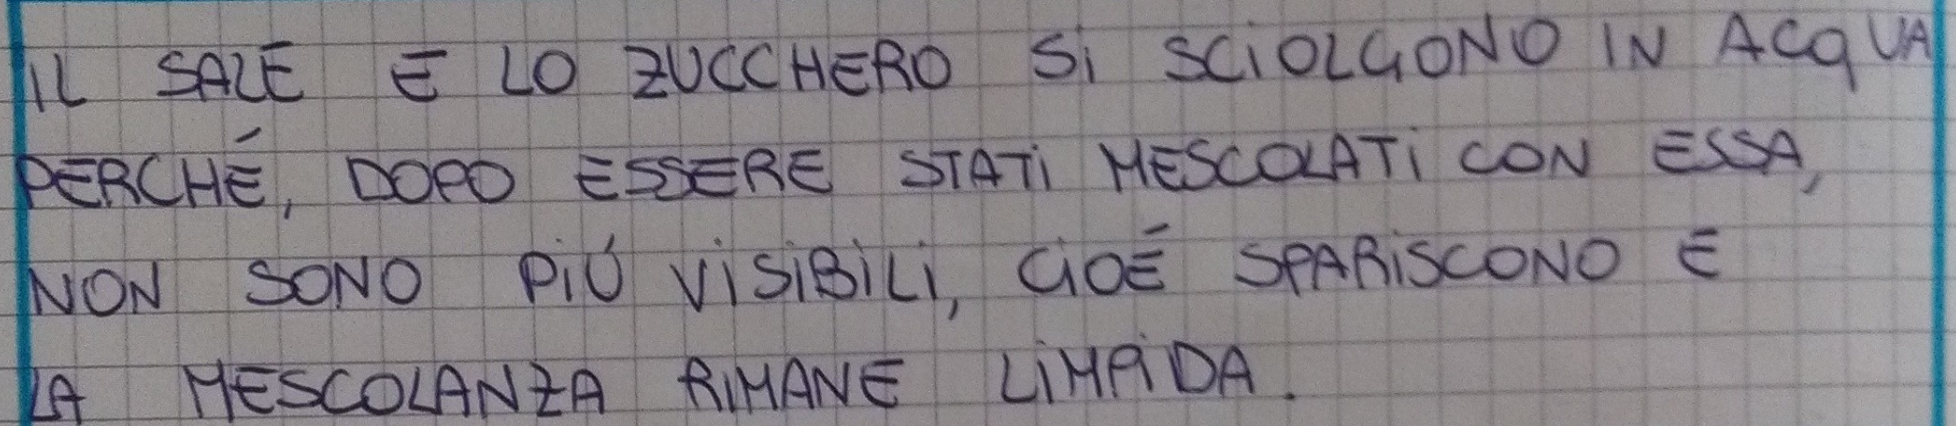 IL SALE E LO ZUCCHERO Si SCiOLGONO IN ACqUA
PERCHÉ, DOPO ESSERE STATi MESCOLATi CON ESSA,
NON SONO PiÚ ViSiBiLi, CiOÉ SPARiSCONO E
LA MESCOLANZA RIMANE LiMPiDA.